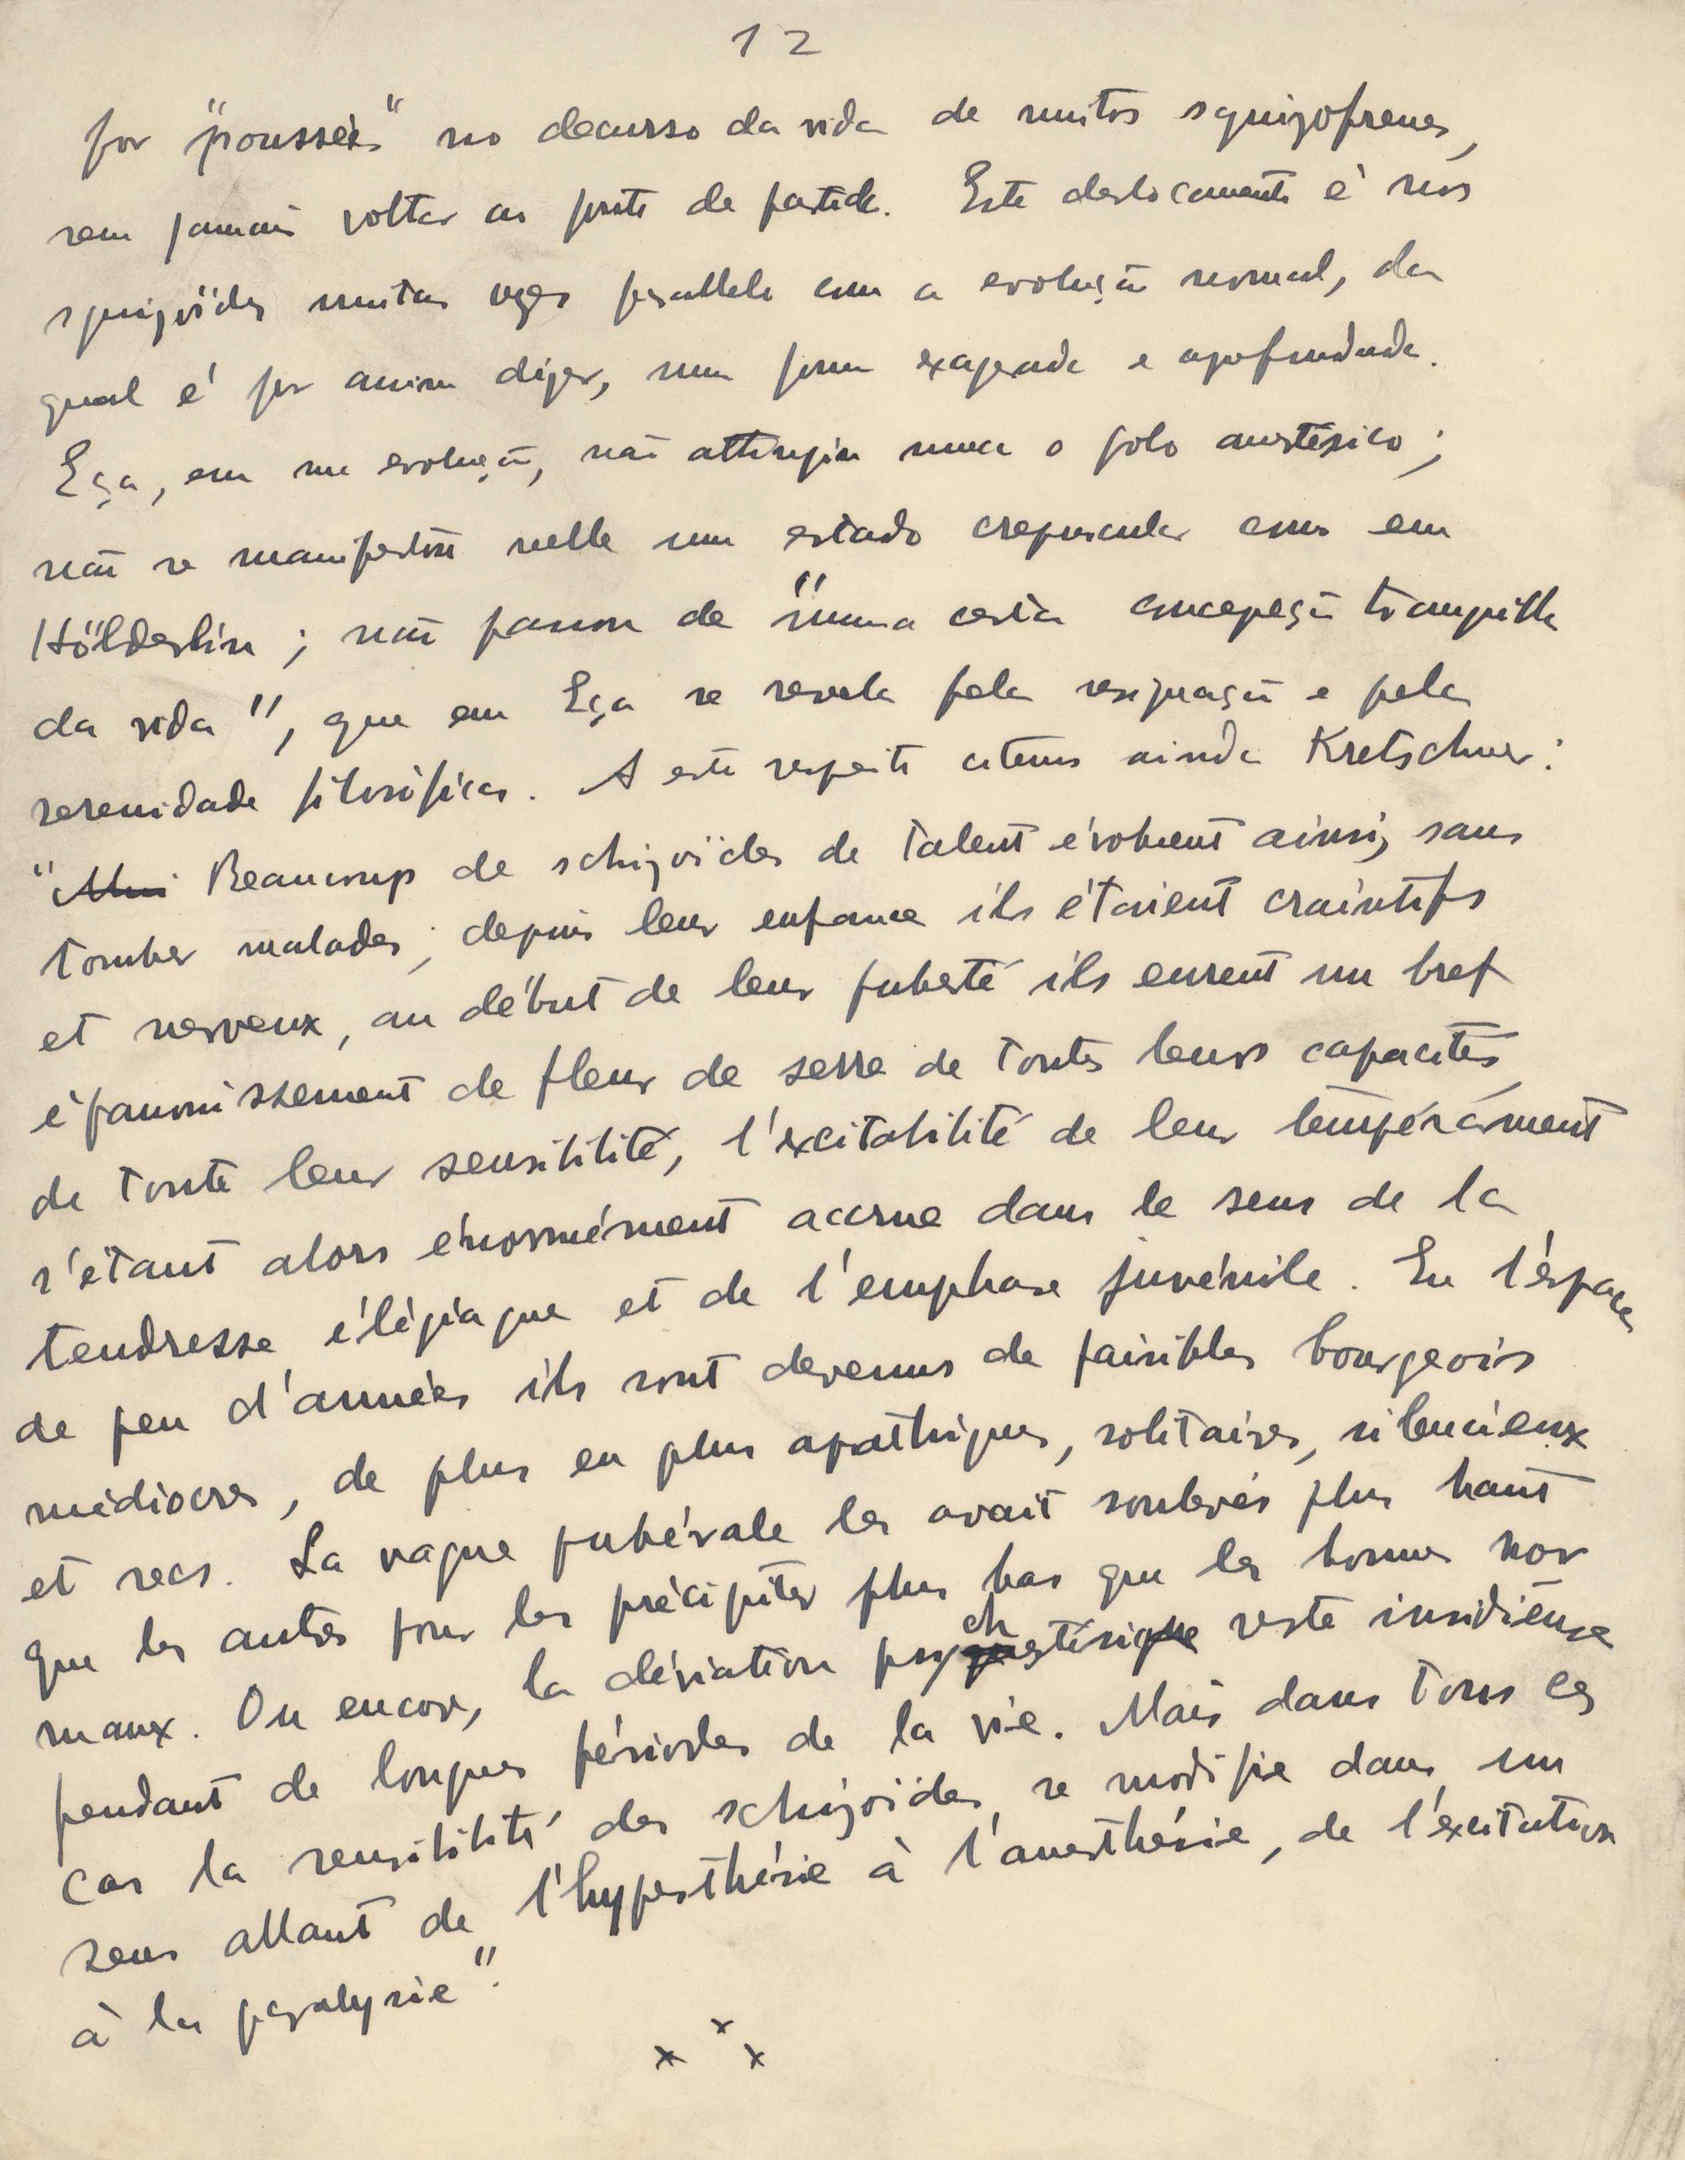 12
por "poussées" no decurso da vida de muitos squizofrenes,
sem jamais voltar ao ponto de partida. Este deslocamento é nos
squizoïdes muitas vezes parallelo com a evolução normal, da
qual é por assim dizer, uma forma exagerada e aprofundada.
Eça, em sua evolução, não attingiu nunca o polo anestésico;
não se manifestou nelle um estado crepuscular como em
Hölderlin; não passou de "numa certa concepção tranquilla
da vida", que em Eça se revela pela resignação e pela
serenidade filosófica. A este respeito citemos ainda Kretschmer:
" Beaucoup de schizoïdes de talent évoluent ainsi, sans
tomber malades; depuis leur enfance ils étaient craintifs
et nerveux, au début de leur puberté ils eurent un bref
épanouissement de fleur de serre de toutes leurs capacités,
de toute leur sensibilité, l'excitabilité de leur tempérament
s'étant alors énormément accrue dans le sens de la
tendresse élégiaque et de l'emphase juvénile. En l'espace
de peu d'années ils sont devenus de paisibles bourgeois
médiocres, de plus en plus apathiques, solitaires, silencieux
et secs. La vague pubérale les avait soulevés plus haut
que les autres pour les précipiter plus bas que les hommes nor
maux. Ou encore, la déviation psychestésique reste insidieuse
pendant de longues périodes de la vie. Mais dans tous ces
cas la sensibilité des schizoïdes se modifie dans un
sens allant de l'hyperthésie à l'anesthésie, de l'excitation
à la paralysie".
x x x